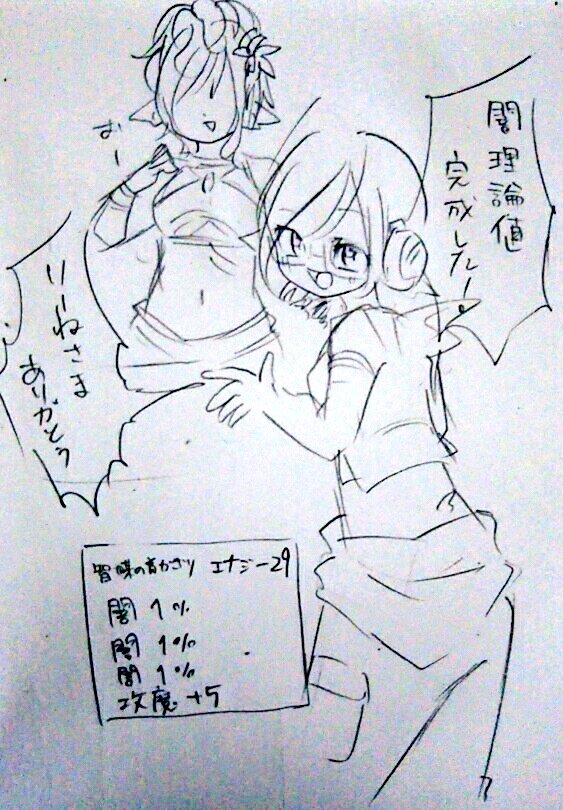 闇理論値
完成したー。
おー
りーねさま
ありがとう
智蝶の首かざり エナジー29
闇 1%
闇 1%
闇 1%
攻魔 +5